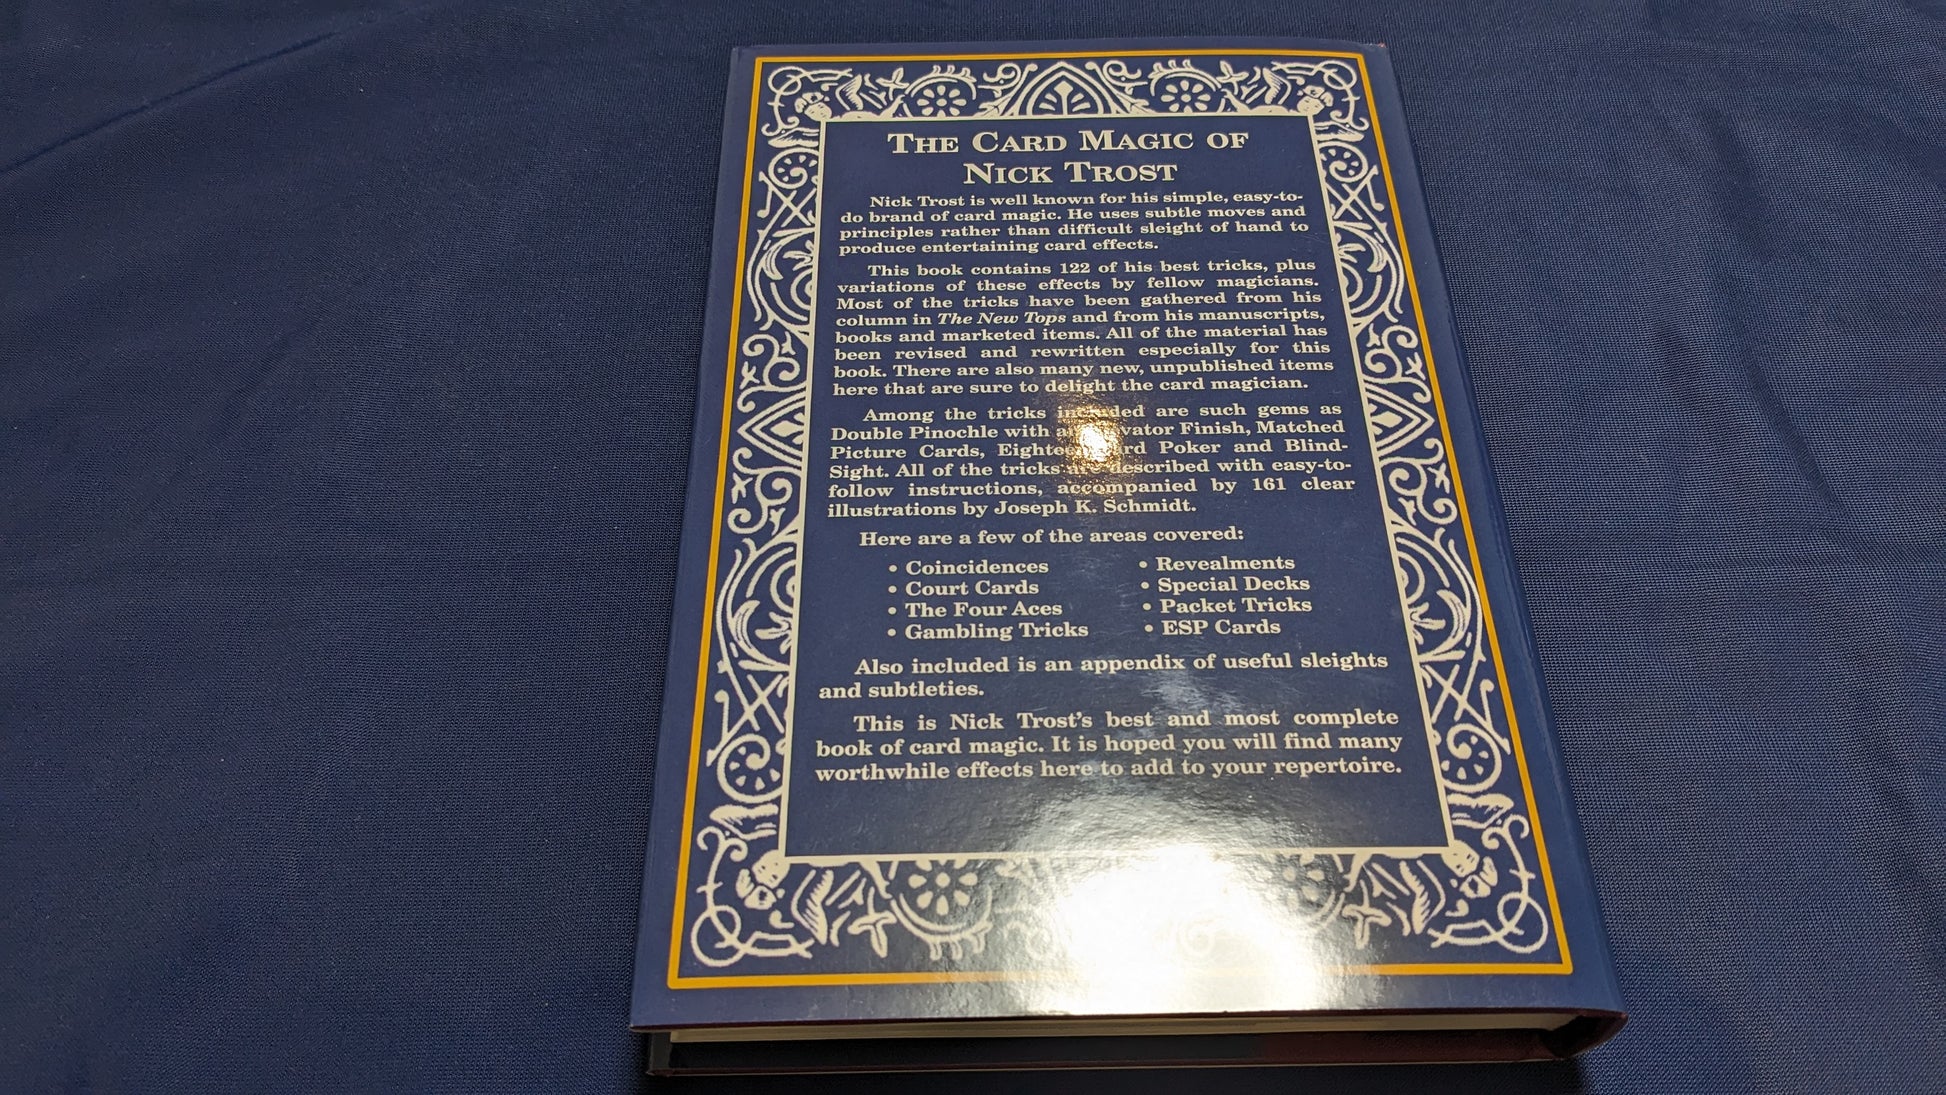 THE CARD MAGIC OF
NICK TROST
Nick Trost is well known for his simple, easy-to-
do brand of card magic. He uses subtle moves and
principles rather than difficult sleight of hand to
produce entertaining card effects.
This book contains 122 of his best tricks, plus
variations of these effects by fellow magicians.
Most of the tricks have been gathered from his
column in The New Tops and from his manuscripts,
books and marketed items. All of the material has
been revised and rewritten especially for this
book. There are also many new, unpublished items
here that are sure to delight the card magician.
Among the tricks included are such gems as
Double Pinochle with Finish, Matched
Picture Cards, Poker and Blind-
Sight. All of the tricks are described with easy-to-
follow instructions, accompanied by 161 clear
illustrations by Joseph K. Schmidt.
Here are a few of the areas covered:
• Coincidences
• Court Cards
• The Four Aces
• Gambling Tricks
• Revealments
• Special Decks
• Packet Tricks
• ESP Cards
Also included is an appendix of useful sleights
and subtleties.
This is Nick Trost's best and most complete
book of card magic. It is hoped you will find many
worthwhile effects here to add to your repertoire.